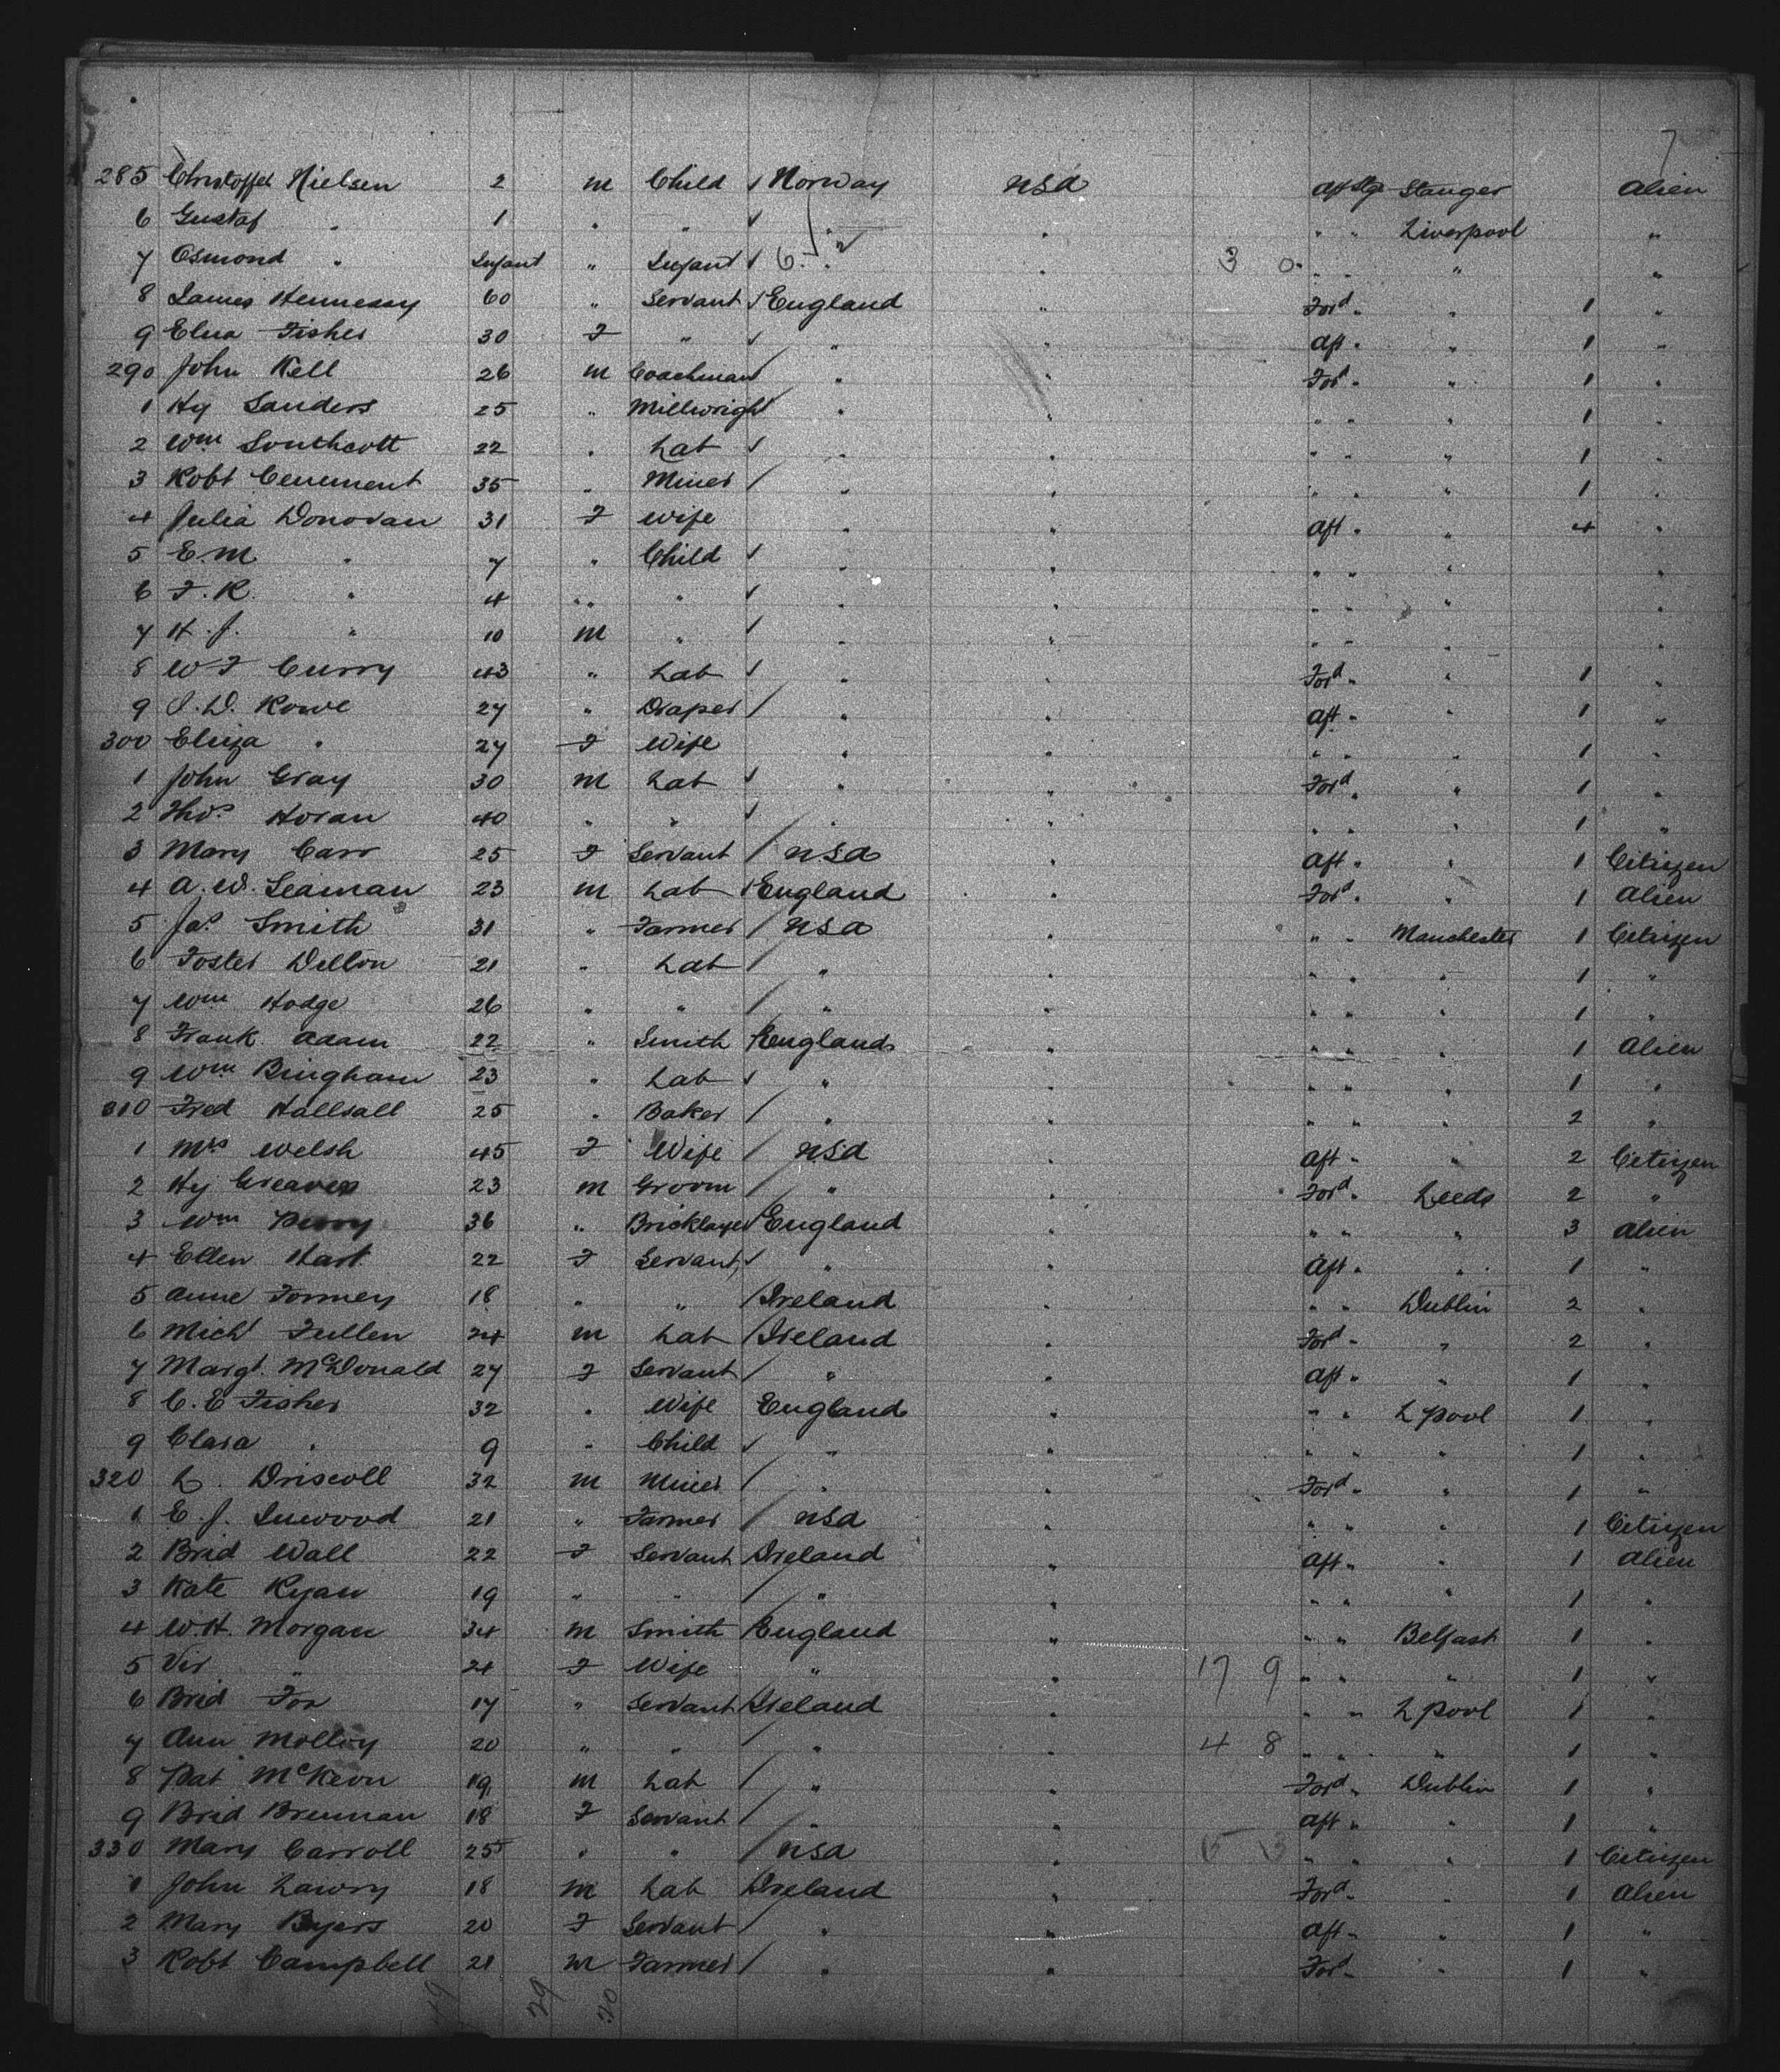 7
285 Christoffel Nielsen 2 m Child Norway usa Aft Stge Stanger Alien
6 Gustaf " 1 " " " " " " Liverpool "
7 Osmond " Infant " Infant 6 " " 3 0 " " " "
8 James Hennessy 60 " Servant England " Ford " " 1 "
9 Eliza Fisher 30 F " " " Aft " " 1 "
290 John Kell 26 m Coachman " " Ford " " 1 "
1 Hy Sanders 25 " Millwright " " " " " 1 "
2 Wm Southcott 22 " Lab " " " " " 1 "
3 Robt 35 " Miner " " " " " 1 "
4 Julia Donovan 31 F Wife " " Aft " " 4 "
5 E.M. " 7 " Child " " " " " "
6 F.R. " 4 " " " " " " " "
7 H.J. " 10 m " " " " " " "
8 W F Curry 43 " Lab " " Ford " " 1 "
9 S.D. Rowe 27 " Draper " " Aft " " 1 "
300 Eliza " 27 F Wife " " " " " 1 "
1 John Gray 30 m Lab " " Ford " " 1 "
2 Thos Horan 40 " " " " " " " 1 "
3 Mary Carr 25 F Servant usa " Aft " " 1 Citizen
4 A.W. Seaman 23 m Lab England " Ford " " 1 Alien
5 Jas Smith 31 " Farmer usa " " " Manchester 1 Citizen
6 Foster Delton 21 " Lab " " " " " 1 "
7 Wm Hodge 26 " " " " " " " 1 "
8 Frank Adam 22 " Smith England " " " " 1 Alien
9 Wm Bingham 23 " Lab " " " " " 1 "
310 Fred Hallsall 25 " Baker " " " " " 2 "
1 Mrs Welsh 45 F Wife usa " Aft " " 2 Citizen
2 Hy Greaves 23 m Groom " " Ford " Leeds 2 "
3 Wm Perry 36 " Bricklayer England " " " " 3 Alien
4 Ellen Hart 22 F Servant " " Aft " " 1 "
5 Anne Formey 18 " " Ireland " " " Dublin 2 "
6 Michl Fullen 24 m Lab Ireland " Ford " " 2 "
7 Margt McDonald 27 F Servant " " Aft " " 1 "
8 C.E Fisher 32 " Wife England " " " L pool 1 "
9 Clara " 9 " Child " " " " " 1 "
320 L. Driscoll 32 m Miner " " Ford " " 1 "
1 E.J. Inwood 21 " Farmer usa " " " " 1 Citizen
2 Brid Wall 22 F Servant Ireland " Aft " " 1 Alien
3 Kate Ryan 19 " " " " " " " 1 "
4 W.H. Morgan 34 m Smith England " " " Belfast 1 "
5 Vir " 24 F Wife " " 17 9 " " " 1 "
6 Brid Fox 17 " Servant Ireland " " " L pool 1 "
7 Ann Molloy 20 " " " " 4 8 " " " 1 "
8 Pat McKeon 19 m Lab " " Ford " Dublin 1 "
9 Brid Brennan 18 F Servant " " Aft " " 1 "
330 Mary Carroll 25 " " usa " 15 13 " " " 1 Citizen
1 John Lawry 18 m Lab Ireland " Ford " " 1 Alien
2 Mary Byers 20 F Servant " " Aft " " 1 "
3 Robt Campbell 21 m Farmer " " Ford " " 1 "
49 29 20